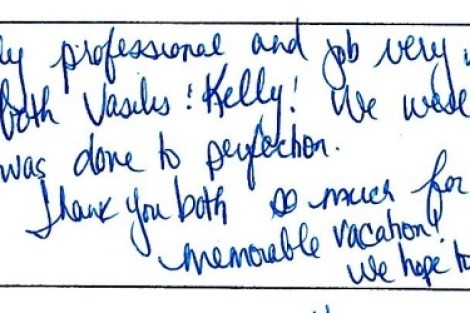 ly professional and job very
both Vasilis & Kelly! We were
was done to perfection.
Thank you both so much for
memorable vacation!
We hope to